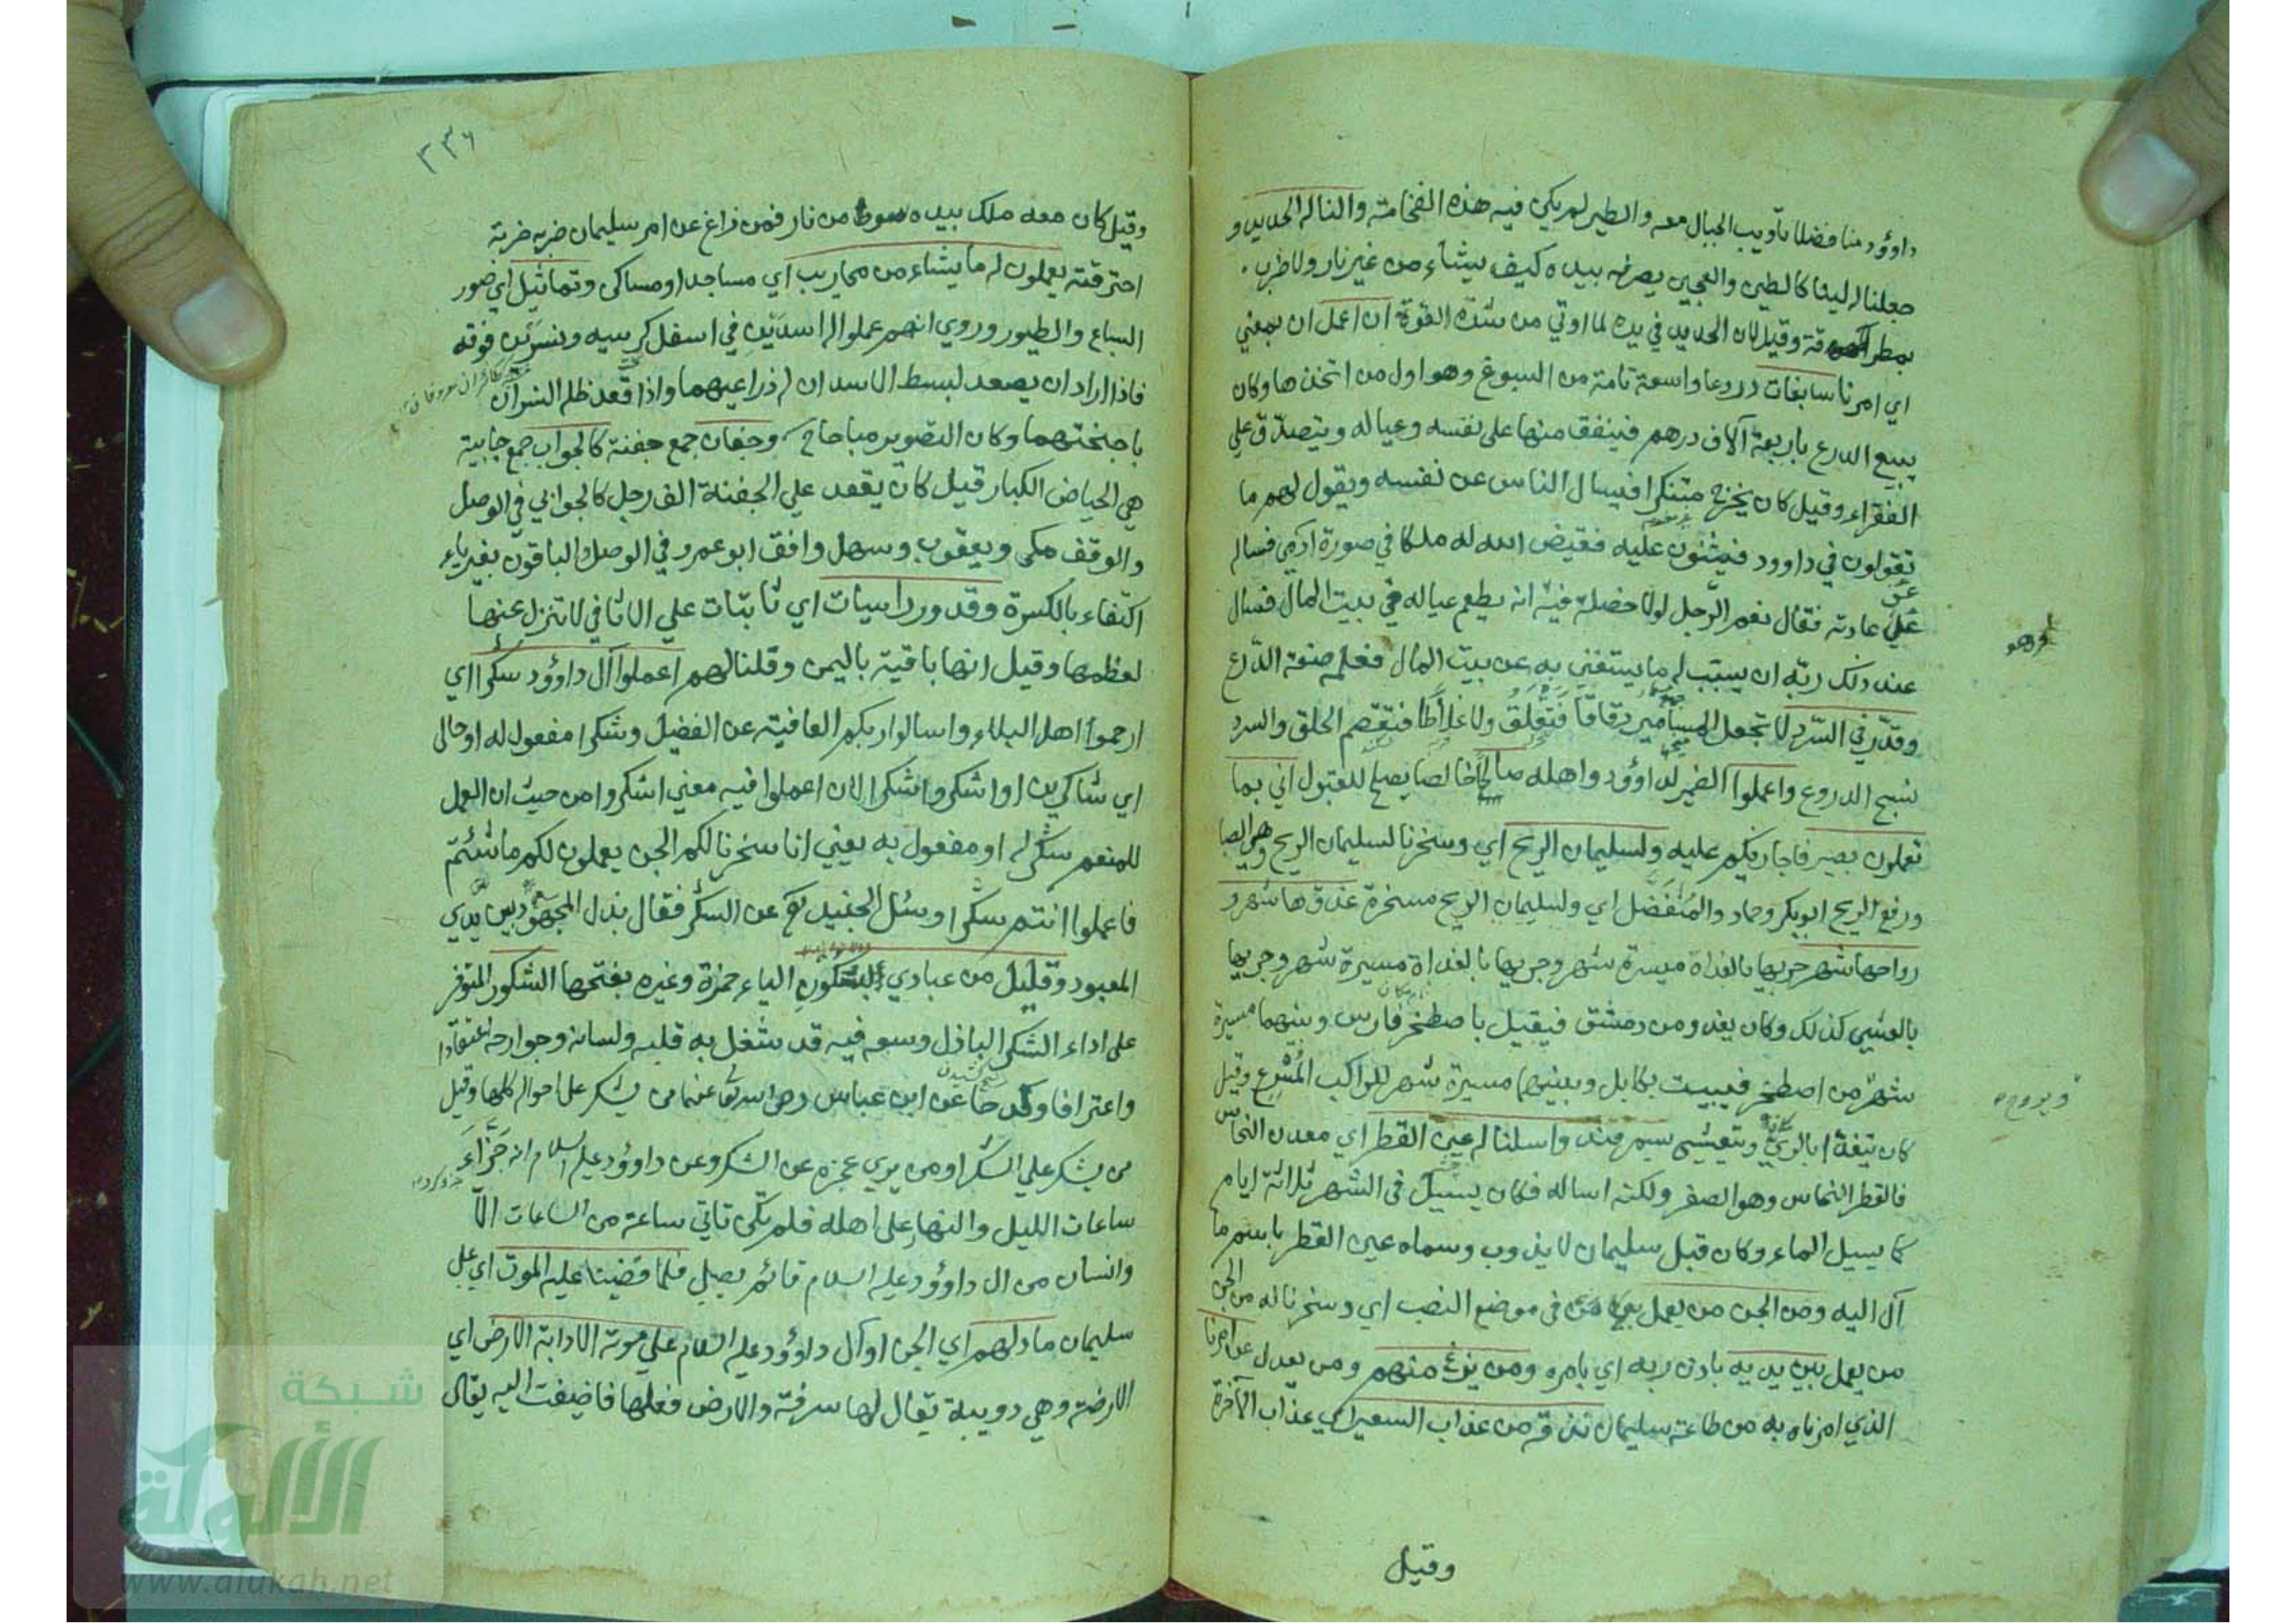 داوود منا فضلا تأويب الجبال معه والطير لم يكن فيه هذه الفخامة والنا له الحديد و
جعلناله لينا كالطين والعجين يصرفه بيده كيف يشاء من غير نار ولا ضرب
بمطرقة وقيل لان الحديد في يده لما اوتي من شدة القوة ان اعمل ان بمعني
اي امرنا سابغات دروعا واسعة تامة من السبوغ وهو اول من اتخذها وكان
يبيع الدرع باربعة آلاف درهم فينفق منها على نفسه وعياله ويتصدق علي
الفقراء وقيل كان يخرج متنكرا فيسال الناس عن نفسه ويقول لهم ما
تقولون في داوود فيثنون عليه فقيض الله له ملكا في صورة ادمي فساله
علي عادته فقال نعم الرجل لولا خصلة فيه انه يطعم عياله في بيت المال فسال
عند ذلك ربه ان يسبب له ما يستغني به عن بيت المال فعلمه صنعة الدرع
وقدر في السرد لا تجعل المسامير دقاقا فتقلق ولا غلاظا فتقصم الحلق والسرد
نسج الدروع واعملوا الضمير لداوود واهله صالحا خالصا يصلح للقبول اني بما
تعملون بصير فاجازيكم عليه ولسليمان الريح اي وسخرنا لسليمان الريح وهي الصبا
ورفع الريح ابوبكر وحماد والمفضل اي ولسليمان الريح مسخرة غدوها شهر و
رواحها شهر جريها بالغداة مسيرة شهر وجريها بالغداة مسيرة شهر وجريها
بالعشي كذلك وكان يغدو من دمشق فيقيل باصطخر فارس وبينهما مسيرة
شهر من اصطخر فيبيت بكابل وبينهما مسيرة شهر للراكب المسرع وقيل
كان يتغدا بالري ويتعشى بسمرقند واسلنا له عين القطر اي معدن النحاس
فالقطر النحاس وهو الصفر ولكنه اساله فكان يسيل في الشهر ثلاثة ايام
كما يسيل الماء وكان قبل سليمان لا يذوب وسماه عين القطر باسم ما
آل اليه ومن الجن من يعمل من في موضع النصب اي وسخرنا له من الجن
من يعمل بين يديه باذن ربه اي بامره ومن يزغ منهم ومن يعدل عن امرنا
الذي امرناه به من طاعة سليمان نذقه من عذاب السعير اي عذاب الآخرة
وقيل
٣٣٦
وقيل كان معه ملك بيده سوط من نار فمن زاغ عن امر سليمان ضربه ضربة
احترقته يعملون له ما يشاء من محاريب اي مساجد او مساكن وتماثيل اي صور
السباع والطيور وروي انهم عملوا له اسدين في اسفل كرسيه ونسرين فوقه
فاذا اراد ان يصعد لبسط الاسدان له ذراعيهما واذا قعد ظله النسران
باجنحتهما وكان التصوير مباحا ح وجفان جمع جفنة كالجواب جمع جابية
هي الحياض الكبار قيل كان يقعد علي الجفنة الف رجل كالجوابي في الوصل
والوقف مكي ويعقوب وسهل وافق ابو عمرو في الوصل والباقون بغير ياء
اكتفاء بالكسرة وقدور راسيات اي ثابتات علي الاثافي لا تنزل عنها
لعظمها وقيل انها باقية باليمن وقلنا لهم اعملوا آل داوود شكرا اي
ارحموا اهل البلاء واسالوا ربكم العافية عن الفضيل وشكرا مفعول له او حالى
اي شاكرين او اشكروا شكرا لان اعملوا فيه معني اشكروا من حيث ان العمل
للمنعم شكر له او مفعول به يعني انا سخرنا لكم الجن يعملون لكم ما شئتم
فاعملوا انتم شكرا وسئل الجنيد عن الشكر فقال بذل المجهود بين يدي
المعبود وقليل من عبادي الشكور الياء حمزة وغيره بفتحها الشكور المتوفر
على اداء الشكر الباذل وسعه فيه قد شغل به قلبه ولسانه وجوارحه اعتقادا
واعترافا وكدحا عن ابن عباس رضي الله تعا عنهما من يشكر على احواله كلها وقيل
من يشكر علي الشكر او من يري عجزه عن الشكر وعن داوود عليه السلام انه جزاء
ساعات الليل والنهار على اهله فلم تكن تاتي ساعة من الساعات الا
وانسان من ال داوود عليه السلام قائم يصلي فلما قضينا عليه الموت اي على
سليمان ما دلهم اي الجن او آل داوود عليه السلام علي موته الا دابة الارض اي
الارضة وهي دويبة تقال لها سرفة والارض فعلها فاضيفت اليه يقال
شبكة
الألوكة
www.alukah.net